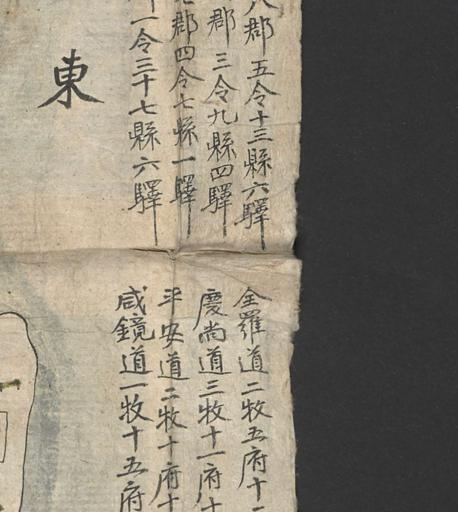 郡五令十三縣六驛
郡三令九縣四驛
郡四令七縣一驛
一令三十七縣六驛
東
全羅道二牧五府十
慶尚道三牧十一府十
平安道二牧十府十
咸鏡道一牧十五府